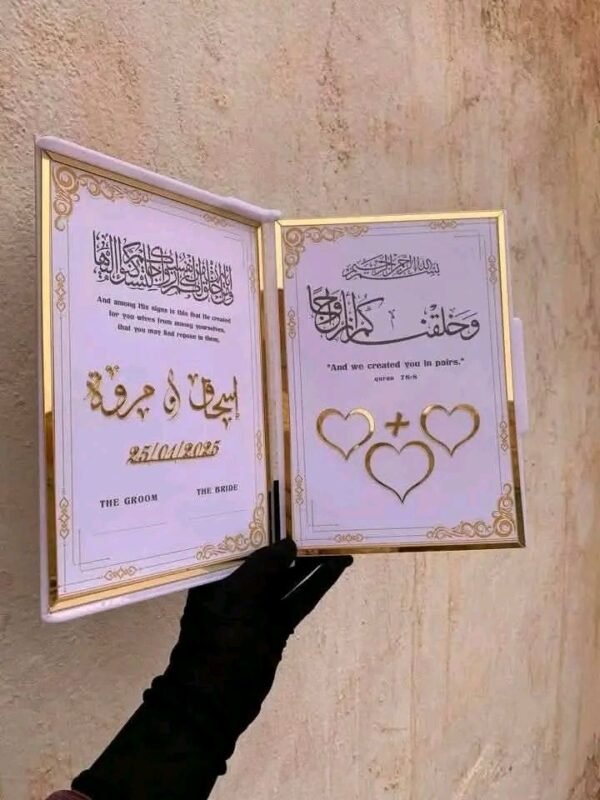 ومن آياته أن خلق لكم من أنفسكم أزواجا لتسكنوا إليها
And among His signs is this that He created
for you wives from among yourselves,
that you may find repose in them,
إسحاق و مروة
25/01/2025
THE GROOM THE BRIDE
بسم الله الرحمن الرحيم
وَخَلَقْنَٰكُمْ أَزْوَٰجًا
"And we created you in pairs."
quran 78:8
+